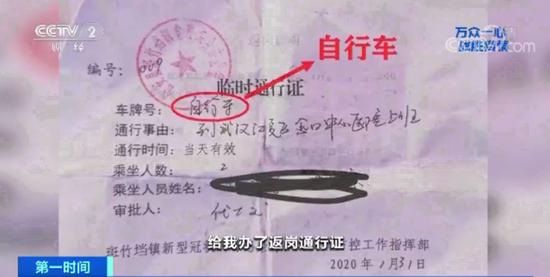 CCTV 2
财经
万众一心
战胜疫情
编号：009
临时通行证
自行车
车牌号：自行车
通行事由：到武汉江夏区金口中心卫生院上班
通行时间：当天有效
乘坐人数：2
乘坐人员姓名：
审批人：
给我办了返岗通行证
斑竹垱镇新型冠 控工作指挥部
2020年1月31日
第一时间